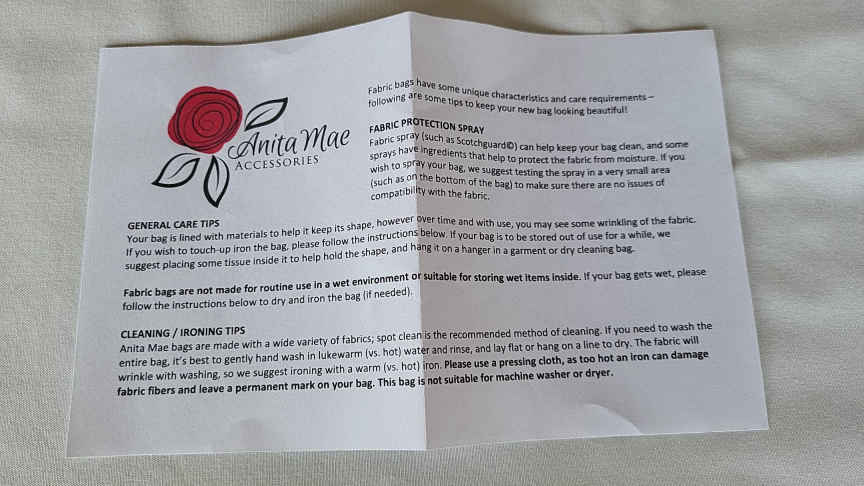 Anita Mae
ACCESSORIES
Fabric bags have some unique characteristics and care requirements –
following are some tips to keep your new bag looking beautiful!
FABRIC PROTECTION SPRAY
Fabric spray (such as Scotchguard©) can help keep your bag clean, and some
sprays have ingredients that help to protect the fabric from moisture. If you
wish to spray your bag, we suggest testing the spray in a very small area
(such as on the bottom of the bag) to make sure there are no issues of
compatibility with the fabric.
GENERAL CARE TIPS
Your bag is lined with materials to help it keep its shape, however over time and with use, you may see some wrinkling of the fabric.
If you wish to touch-up iron the bag, please follow the instructions below. If your bag is to be stored out of use for a while, we
suggest placing some tissue inside it to help hold the shape, and hang it on a hanger in a garment or dry cleaning bag.
Fabric bags are not made for routine use in a wet environment or suitable for storing wet items inside. If your bag gets wet, please
follow the instructions below to dry and iron the bag (if needed).
CLEANING / IRONING TIPS
Anita Mae bags are made with a wide variety of fabrics; spot clean is the recommended method of cleaning. If you need to wash the
entire bag, it's best to gently hand wash in lukewarm (vs. hot) water and rinse, and lay flat or hang on a line to dry. The fabric will
wrinkle with washing, so we suggest ironing with a warm (vs. hot) iron. Please use a pressing cloth, as too hot an iron can damage
fabric fibers and leave a permanent mark on your bag. This bag is not suitable for machine washer or dryer.